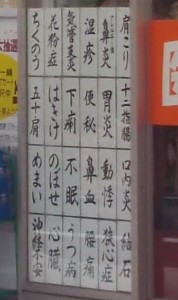 肩こり 十二指腸 口内炎 結石
鼻炎 胃炎 動悸 狭心症
湿疹 便秘 鼻血 腰痛
気管支炎 下痢 不眠 うつ病
花粉症 はきけ のぼせ 心臓
ちくのう 五十肩 めまい 神経不安